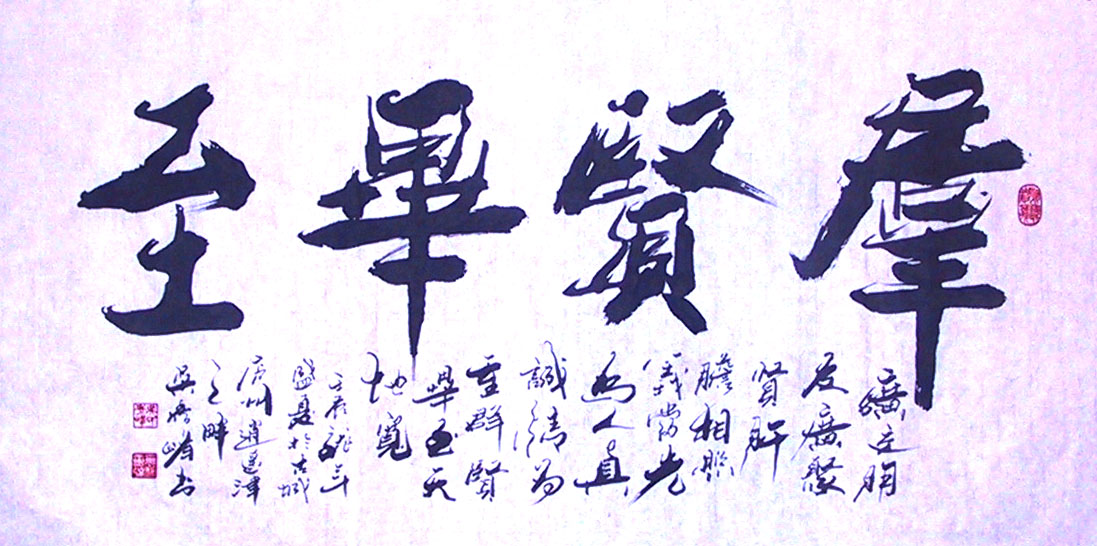 羣賢畢至
廣交朋
友廣聚
賢肝
膽相照
義當先
為人真
誠情為
重群賢
畢至天
地寬
壬辰龍年
盛夏於古城
庐州逍遙津
之畔
吳書